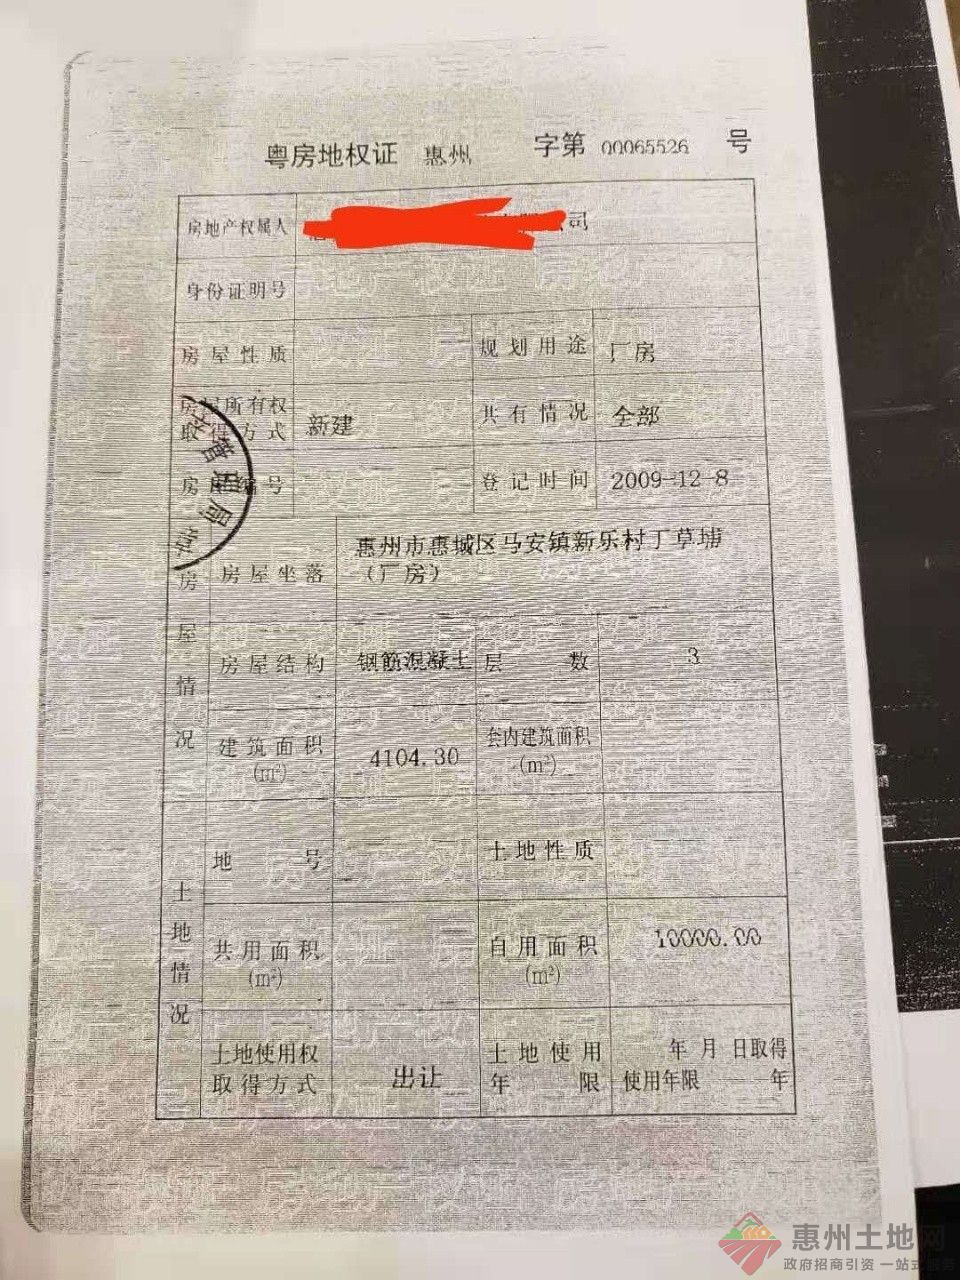 粤房地权证 惠州 字第 00065526 号
房地产权属人 公司
身份证明号
房屋性质 规划用途 厂房
房屋所有权取得方式 新建 共有情况 全部
房屋编号 登记时间 2009-12-8
房屋情况
房屋坐落 惠州市惠城区马安镇新乐村丁草埔
(厂房)
房屋结构 钢筋混凝土 层数 3
建筑面积(m²) 4104.30 套内建筑面积(m²)
土地情况
地号 土地性质
共用面积(m²) 自用面积(m²) 10000.00
土地使用权取得方式 出让 土地使用年限 年 月 日取得
使用年限 年
管理局
惠州土地网
政府招商引资 一站式服务